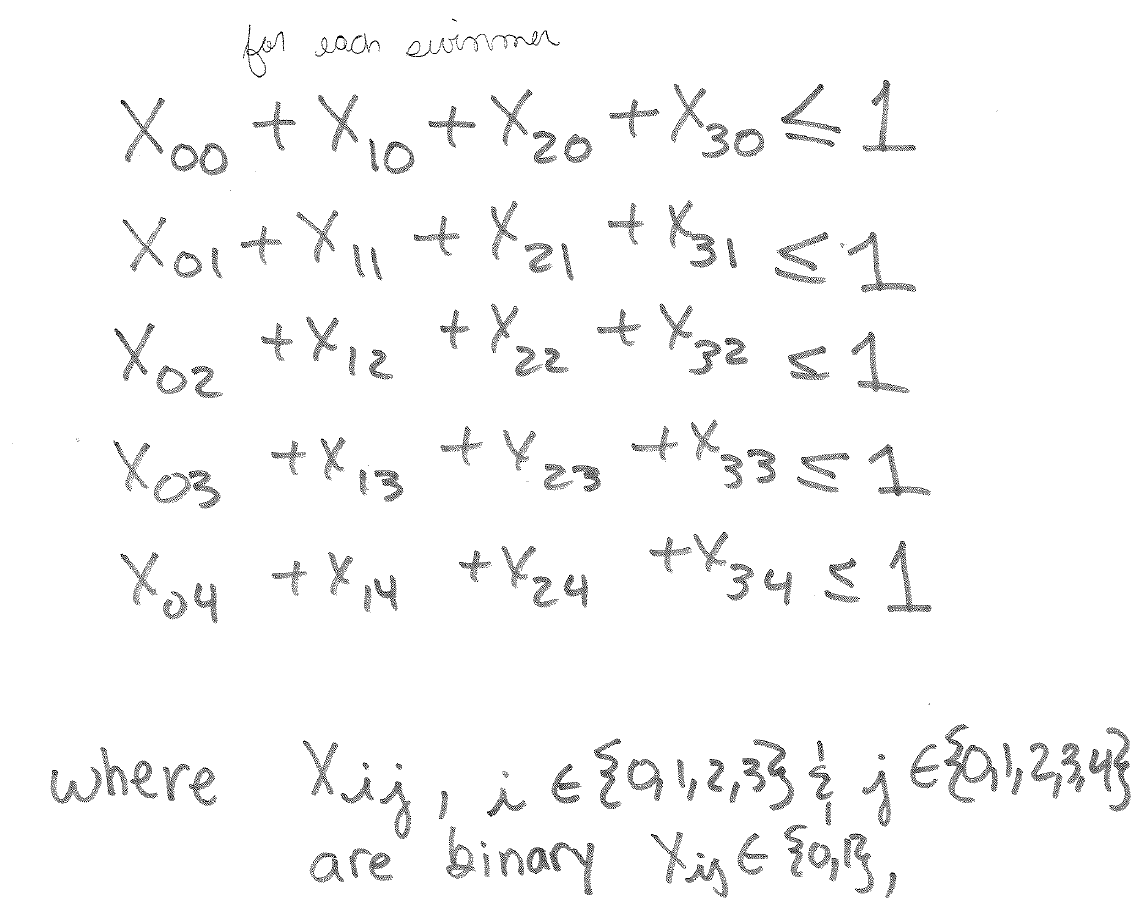 for each swimmer
X₀₀ + X₁₀ + X₂₀ + X₃₀ ≤ 1
X₀₁ + X₁₁ + X₂₁ + X₃₁ ≤ 1
X₀₂ + X₁₂ + X₂₂ + X₃₂ ≤ 1
X₀₃ + X₁₃ + X₂₃ + X₃₃ ≤ 1
X₀₄ + X₁₄ + X₂₄ + X₃₄ ≤ 1
where Xᵢⱼ, i ∈ {0,1,2,3} & j ∈ {0,1,2,3,4}
are binary Xᵢⱼ ∈ {0,1},